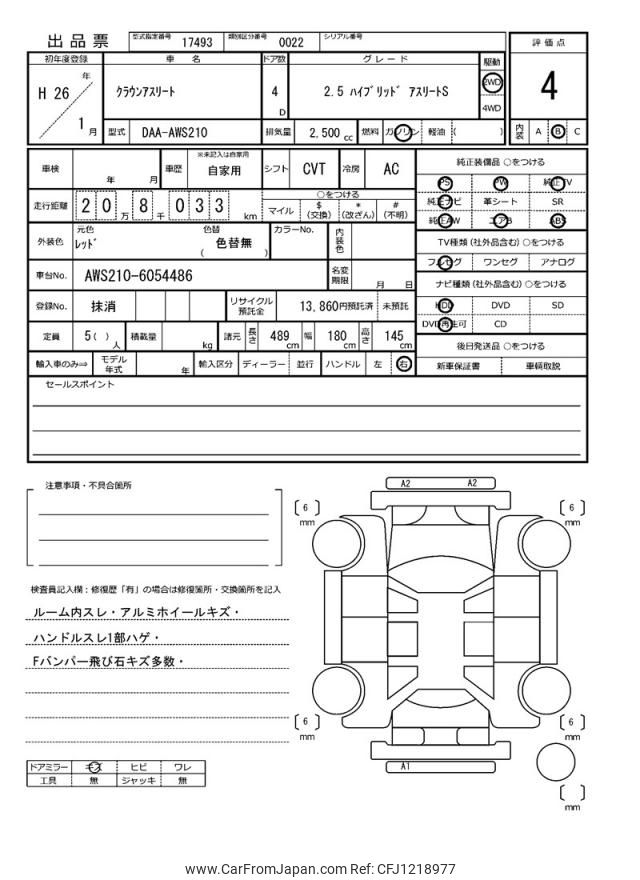 出品票 型式指定番号 17493 類別区分番号 0022 シリアル番号
評価点
4
初年度登録 車名 ドア数 グレード 駆動
H 26 年 1 月
クラウンアスリート 4 D 2.5 ハイブリッド アスリートS 2WD
4WD
型式 DAA-AWS210 排気量 2,500 cc 燃料 ガソリン 軽油 ( )
内装 A B C
車検 年 月 車歴 ※未記入は自家用 自家用 シフト CVT 冷房 AC
走行距離 2 0 万 8 千 0 3 3 km
○をつける
マイル $ (交換) * (改ざん) # (不明)
外装色 元色 レッド 色替 ( 色替無 ) カラーNo. 内装色
車台No. AWS210-6054486 名変期限 月 日
登録No. 抹消 リサイクル預託金 13,860円預託済 未預託
定員 5( )人 積載量 kg 諸元 長さ 489 cm 幅 180 cm 高さ 145 cm
輸入車のみ⇒ モデル年式 年 輸入区分 ディーラー 並行 ハンドル 左 右
純正装備品 ○をつける
PS PW 純正TV
純正ナビ 革シート SR
純正AW エアB ABS
TV種類 (社外品含む) ○をつける
フルセグ ワンセグ アナログ
ナビ種類 (社外品含む) ○をつける
HDD DVD SD
DVD再生可 CD
後日発送品 ○をつける
新車保証書 車輌取説
セールスポイント
注意事項・不具合箇所
検査員記入欄：修復歴「有」の場合は修復箇所・交換箇所を記入
ルーム内スレ・アルミホイールキズ・
ハンドルスレ1部ハゲ・
Fバンパー飛び石キズ多数・
ドアミラー キズ ヒビ ワレ
工具 無 ジャッキ 無
A2 A2
[ 6 ] mm
[ 6 ] mm
[ 6 ] mm
[ 6 ] mm
A1
[ ] mm
www.CarFromJapan.com Ref: CFJ1218977